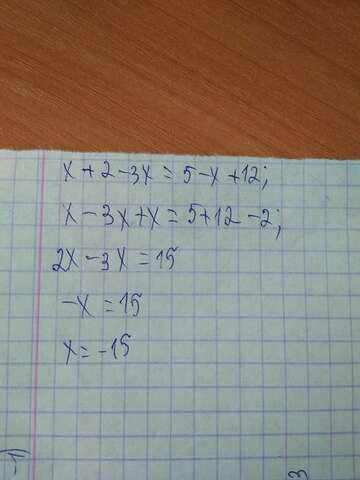 x + 2 - 3x = 5 - x + 12;
x - 3x + x = 5 + 12 - 2;
2x - 3x = 15
-x = 15
x = -15
3